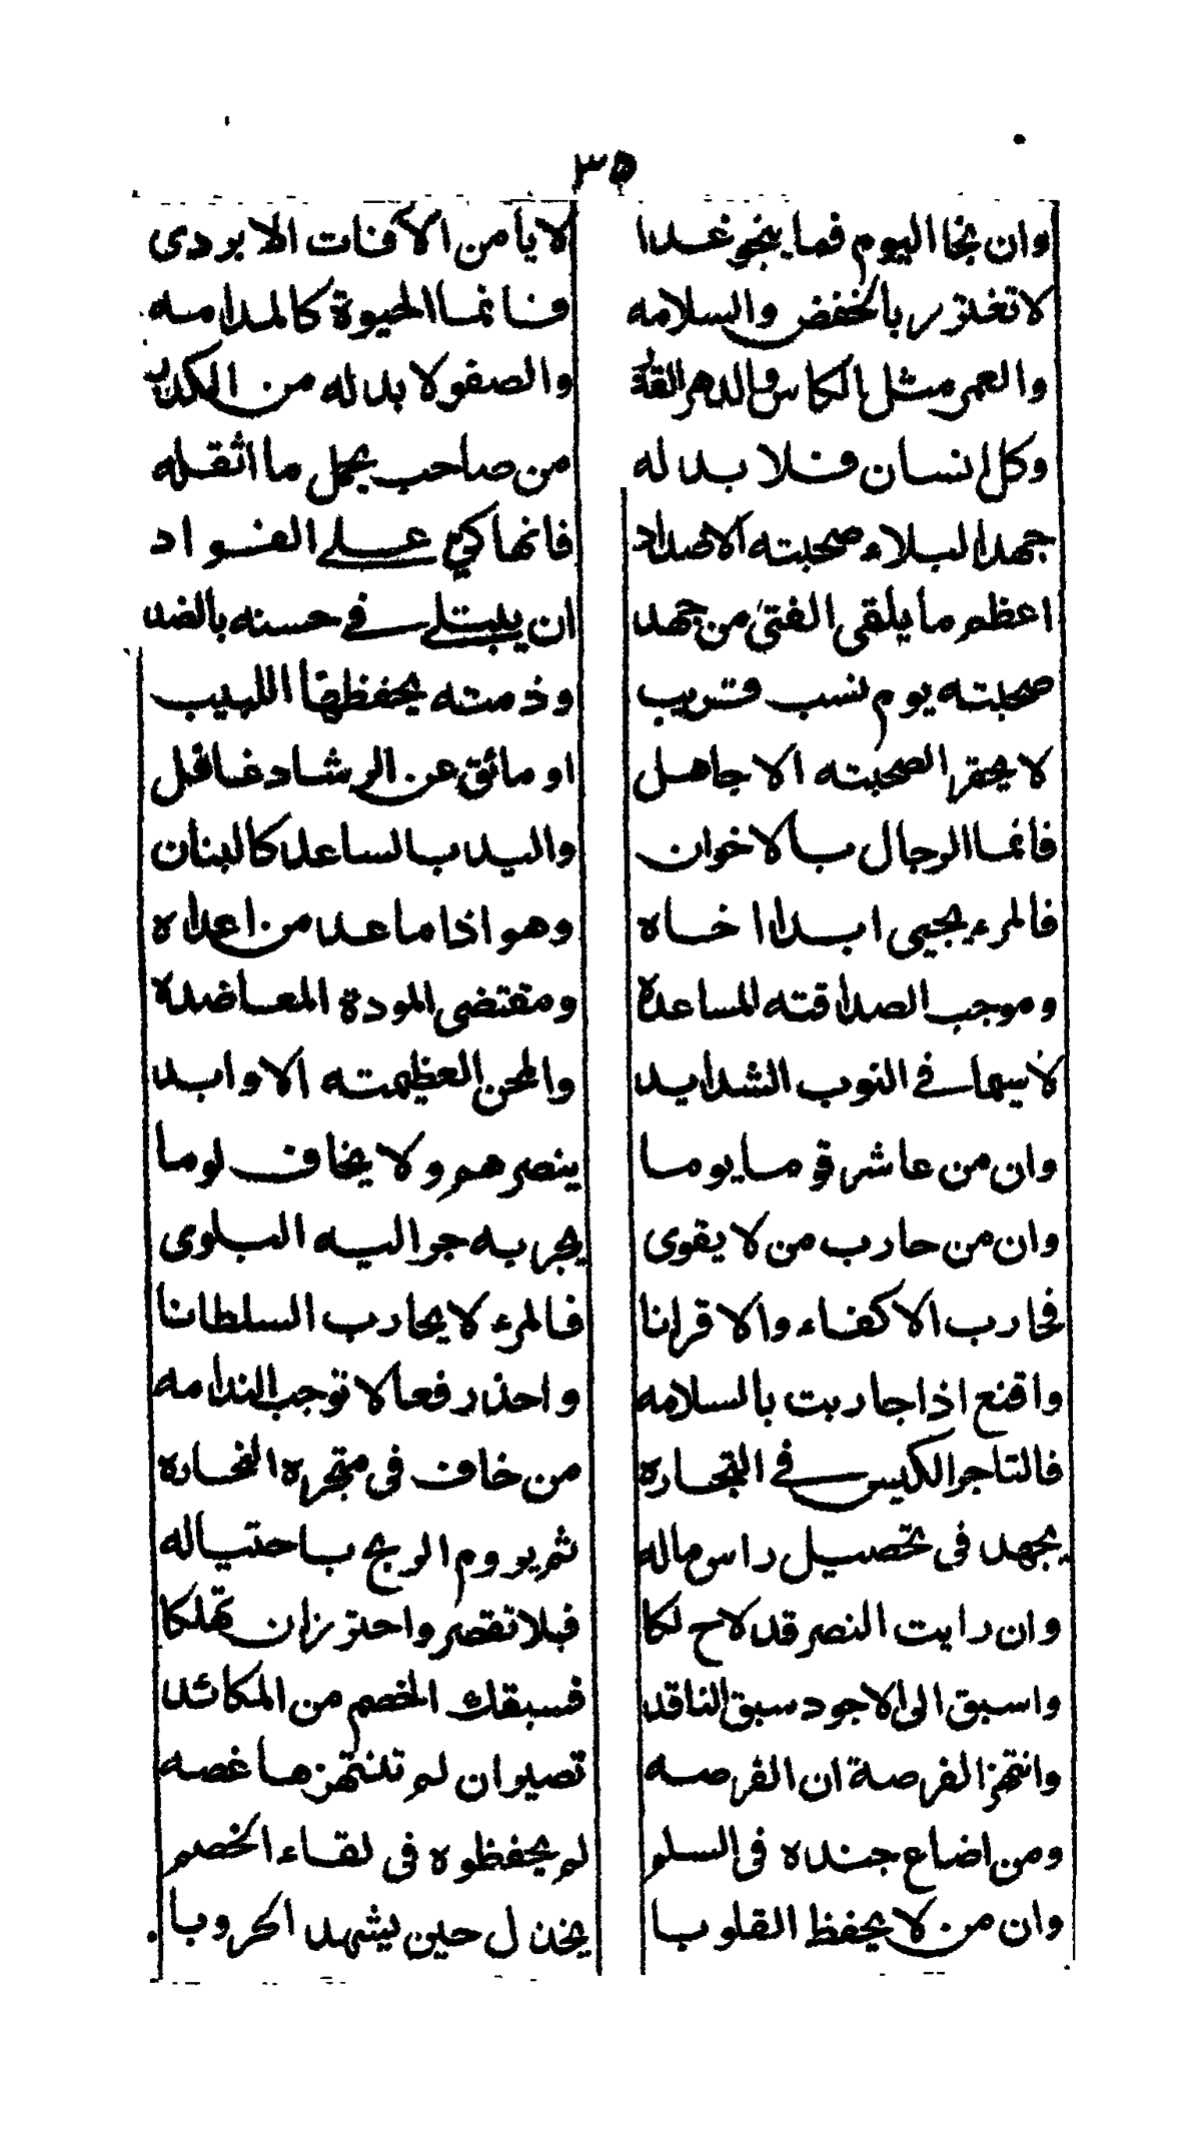 ٣٥
وان نجا اليوم فما ينجو غدا لا يأمن الآفات الا بردى
لا تغترر بالخفض والسلامه فانما الحيوة كالمدامه
والعمر مثل الكاس والدهر القذ والصفو لا بد له من الكدر
وكل انسان فلا بد له من صاحب يحمل ما اثقله
جهد البلاء صحبته الاضداد فانها كي على الفواد
اعظم ما يلقى الفتى من جهد ان يبتلى فى حسنه بالضد
صحبته يوم نسب قريب وذمته يحفظها اللبيب
لا يحقر الصحبته الا جاهل او مائق عن الرشاد غافل
فانما الرجال بالاخوان واليد بالساعد كالبنان
فالمرء يحيى ابدا اخاه وهو اذا ما عد من اعداه
وموجب الصداقته المساعدة ومقتضى المودة المعاضدة
لا سيما فى النوب الشدايد والمحن العظيمته الاوابد
وان من عاشر قوما يوما ينصرهم ولا يخاف لوما
وان من حارب من لا يقوى يجر به جرا اليه البلوى
فحارب الاكفاء والاقرانا فالمرء لا يحارب السلطانا
واقنع اذا حاربت بالسلامه واحذر فعالا توجب الندامه
فالتاجر الكيس فى التجاره من خاف فى متجره الخساره
يجهد فى تحصيل راس ماله ثم يروم الربح باحتياله
وان رايت النصر قد لاح لكا فلا تقصر واحترز ان تهلكا
واسبق الى الاجود سبق الناقد فسبقك الخصم من المكائد
وانتهز الفرصة ان الفرصه تصير ان لم تنتهزها غصه
ومن اضاع جنده فى السلم لم يحفظوه فى لقاء الخصم
وان من لا يحفظ القلوبا يخذل حين يشهد الحروبا